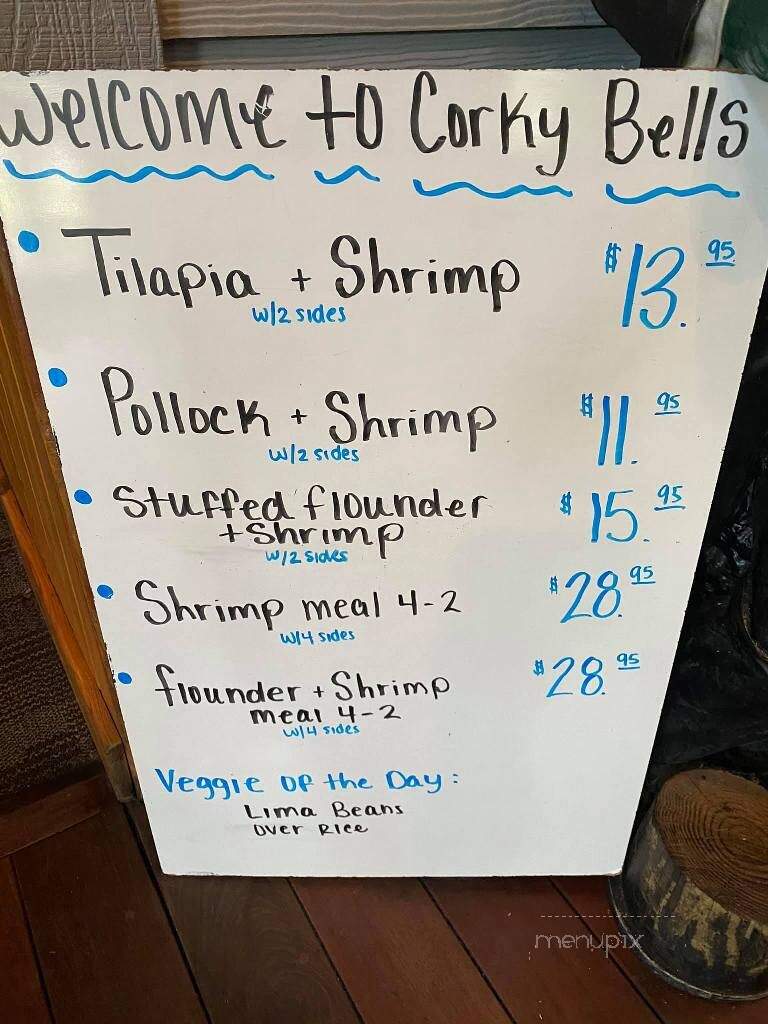 Welcome to Corky Bells
• Tilapia + Shrimp $13.95
w/2 sides
• Pollock + Shrimp $11.95
w/2 sides
• Stuffed flounder $15.95
+ Shrimp
w/2 sides
• Shrimp meal 4-2 $28.95
w/4 sides
• flounder + Shrimp $28.95
meal 4-2
w/4 sides
Veggie of the Day:
Lima Beans
over Rice
menupix